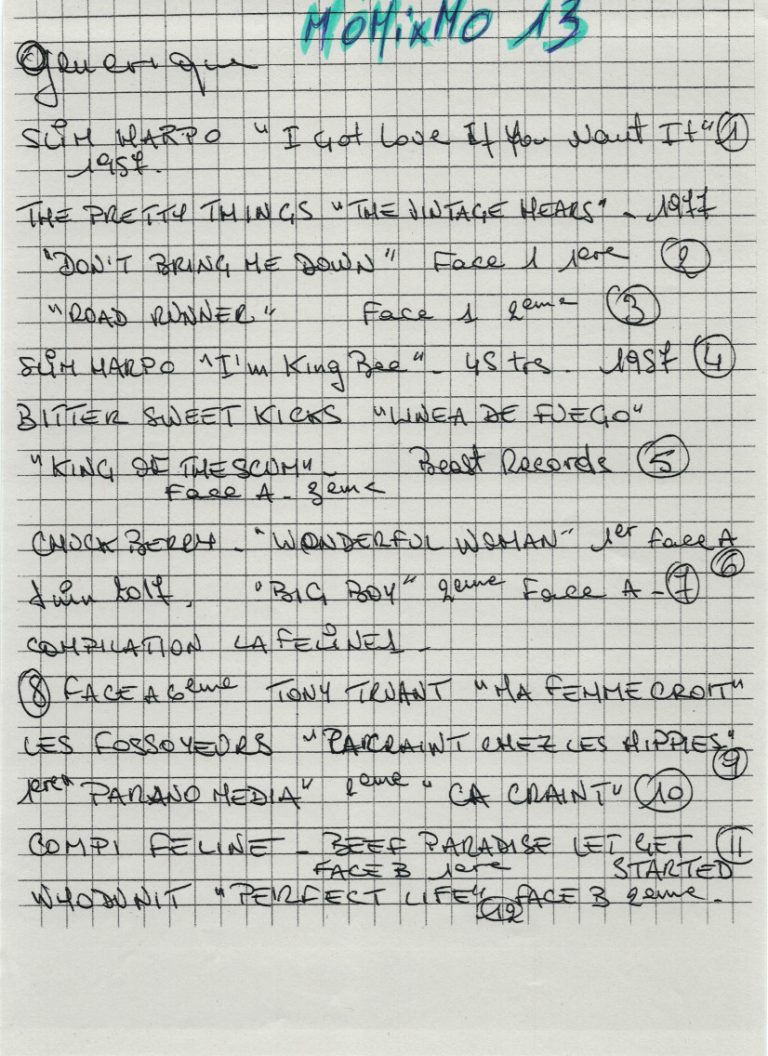 MoMixMo 13
Generique
SLIM HARPO "I Got Love If You Want It" 1
1957.
THE PRETTY THINGS "THE VINTAGE YEARS" - 1977
"DON'T BRING ME DOWN" Face 1 1ere 2
"ROAD RUNNER" Face 1 2eme 3
SLIM HARPO "I'm King Bee" - 45 trs. 1957 4
BITTER SWEET KICKS "LINEA DE FUEGO"
"KING OF THE SCUM" - Beast Records 5
Face A - 3eme
CHUCK BERRY - "WONDERFUL WOMAN" 1er face A
6
Juin 2017. "BIG BOY" 2eme Face A - 7
COMPILATION LA FELINE 1 -
8 FACE A 6eme TONY TRUANT "MA FEMME CROIT"
LES FOSSOYEURS "CRAINT CHEZ LES HIPPIES"
9
1ere "PARANO MEDIA" 2eme "CA CRAINT" 10
COMPI FELINE 1 - BEEF PARADISE LET GET 11
FACE B 1ere STARTED
WHODUNIT "PERFECT LIFE" FACE B 2eme.
12